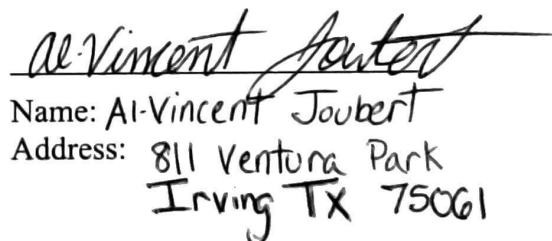 Al-Vincent Joubert
Name: Al-Vincent Joubert
Address: 811 Ventura Park
Irving TX 75061